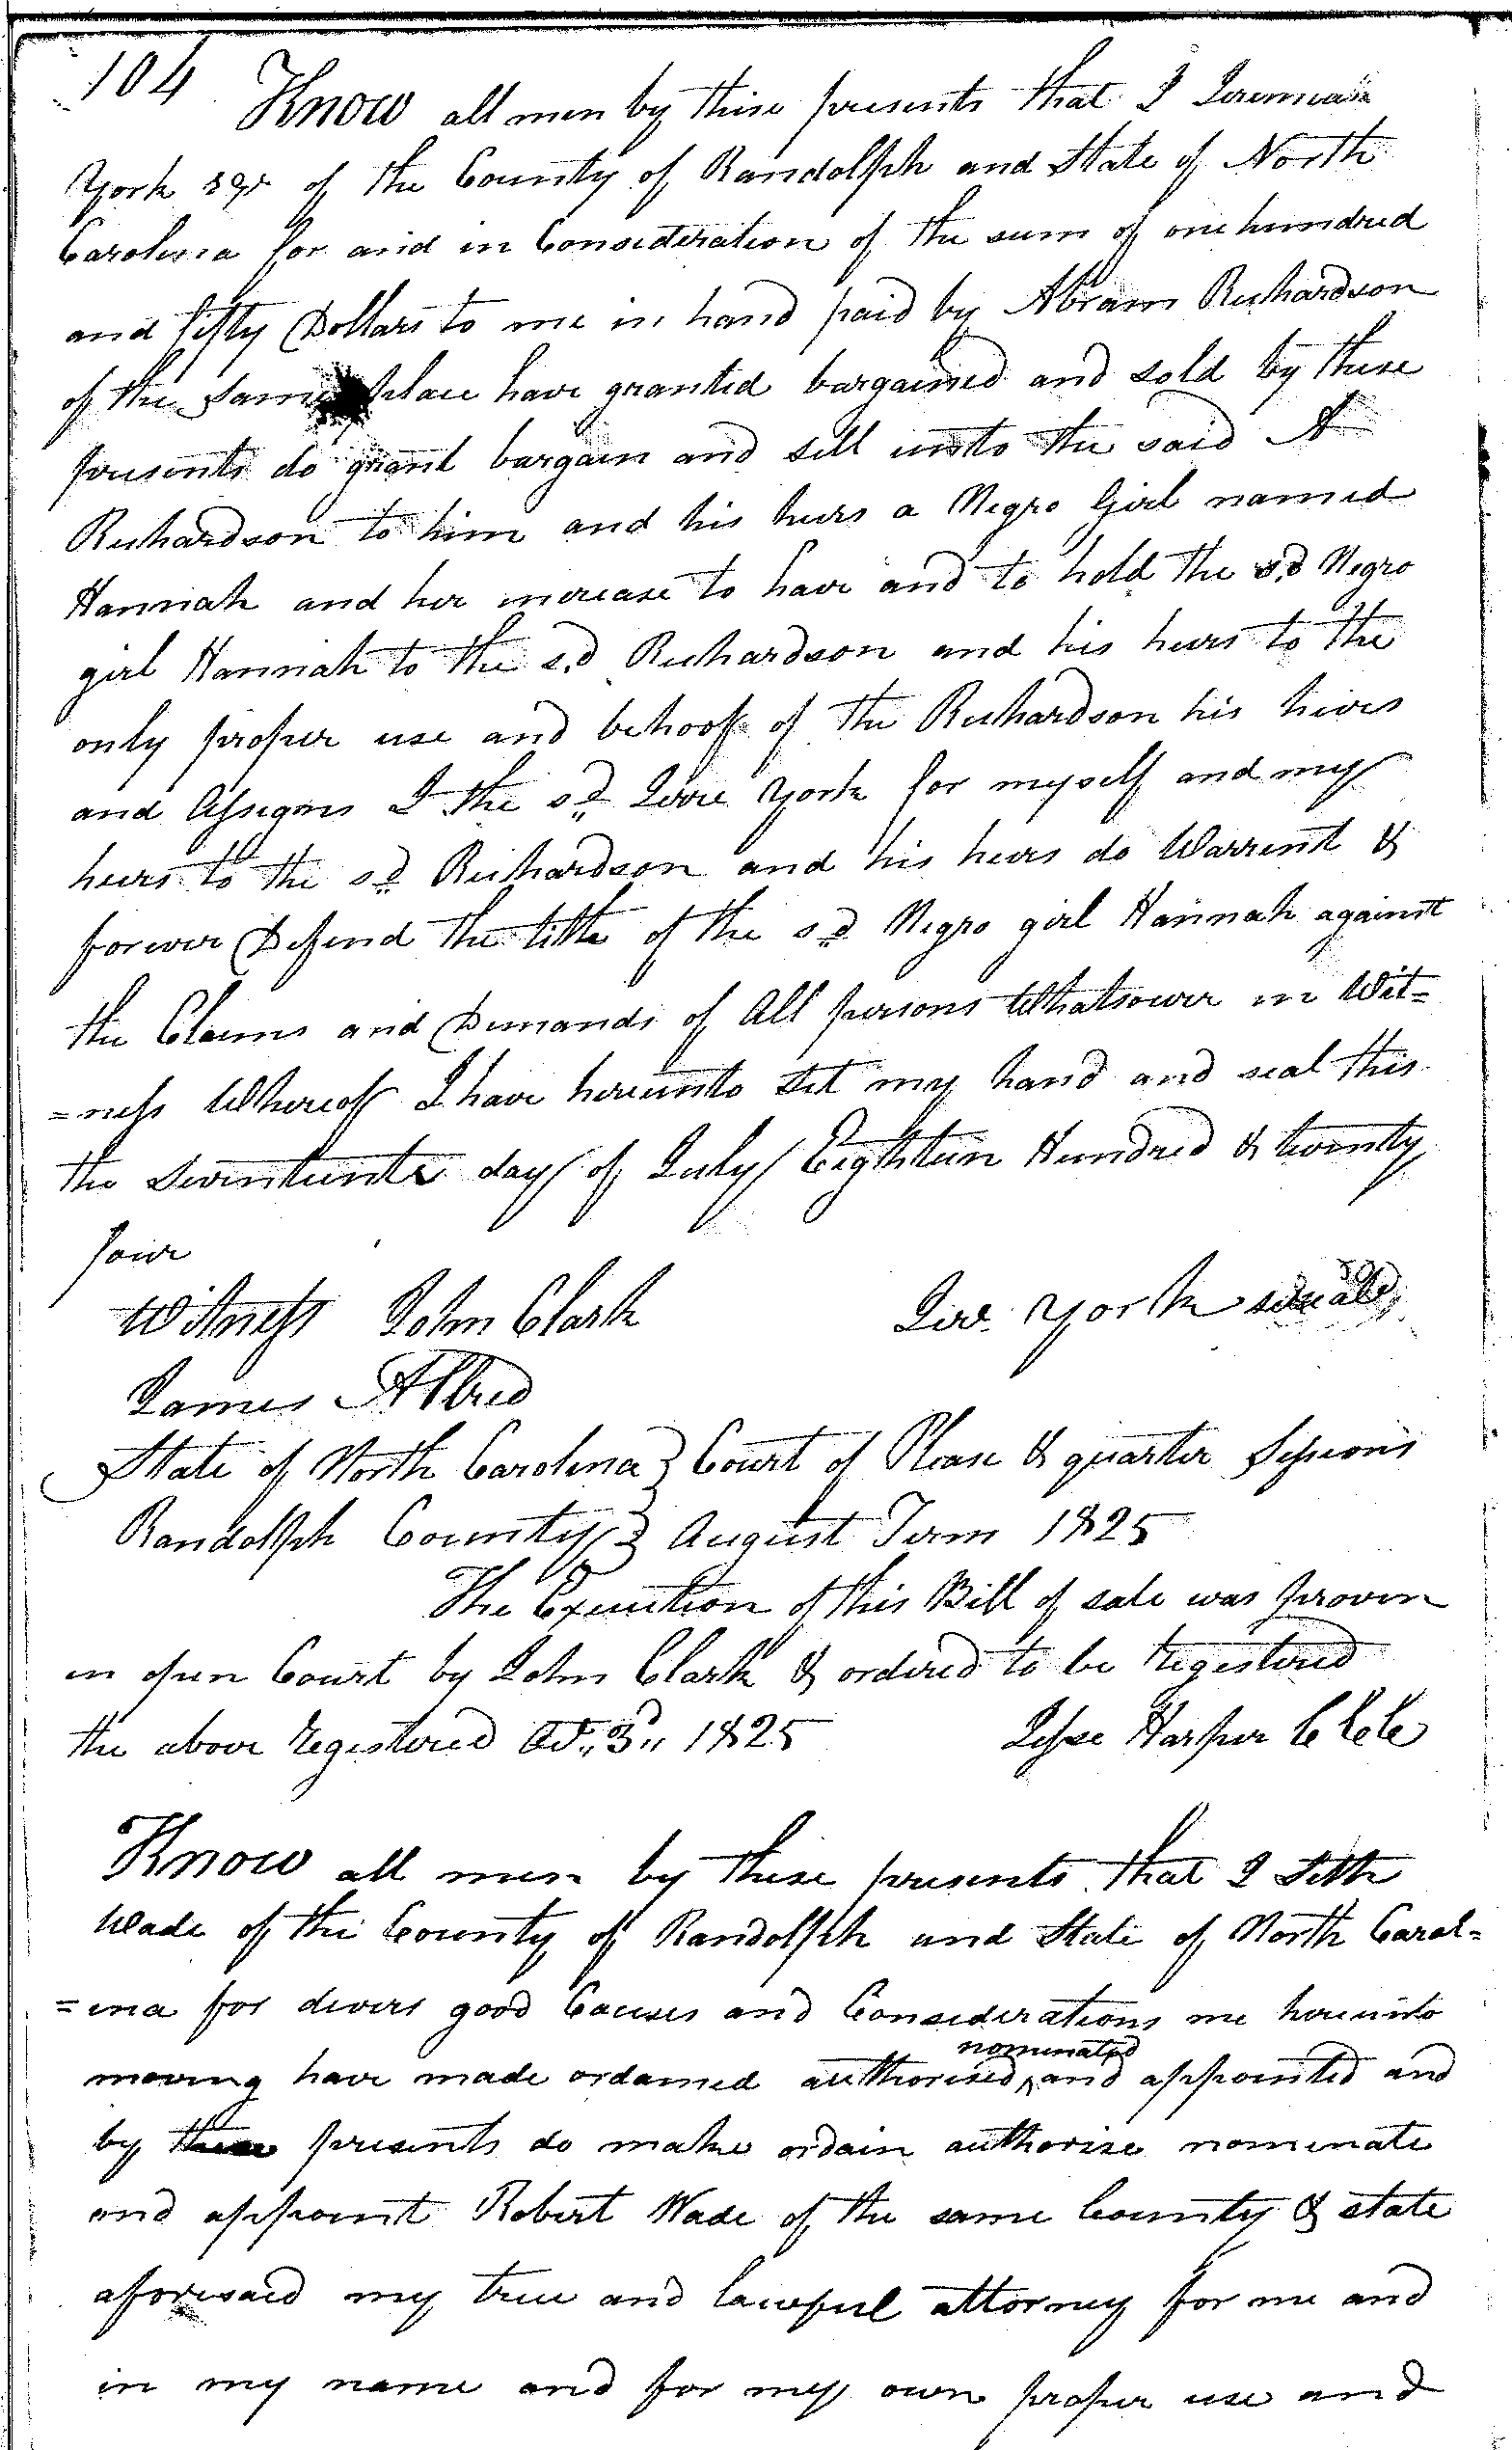 104 Know all men by these presents that I Jeremiah
York sqr of the County of Randolph and State of North
Carolina for and in Consideration of the sum of one hundred
and fifty Dollars to me in hand paid by Abram Richardson
of the same place have granted bargained and sold by these
presents do grant bargain and sell unto the said A
Richardson to him and his heirs a Negro Girl named
Hannah and her increase to have and to hold the sd Negro
girl Hannah to the sd Richardson and his heirs to the
only proper use and behoof of the Richardson his heirs
and Assigns I the sd Jere York for myself and my
heirs to the sd Richardson and his heirs do Warrent &
forever Defend the title of the sd Negro girl Hannah against
the Claims and Demands of All persons Whatsoever in Wit=
=ness Whereof I have hereunto set my hand and seal this
the Seventeenth day of July Eighteen Hundred & twenty
four
Witness John Clark Jere York seal
James Allred
State of North Carolina } Court of Please & quarter Sessions
Randolph County } August Term 1825
The Execution of this Bill of sale was proven
in open Court by John Clark & ordered to be registered
the above registered Oct. 3d 1825 Jesse Harper C Clk
Know all men by these presents that I Seth
Wade of the County of Randolph and State of North Carol=
=ina for divers good Causes and Considerations me hereunto
nominated
moving have made ordained authorised ^ and appointed and
by these presents do make ordain authorise nominate
and appoint Robert Wade of the same County & state
aforesaid my true and lawful attorney for me and
in my name and for my own proper use and